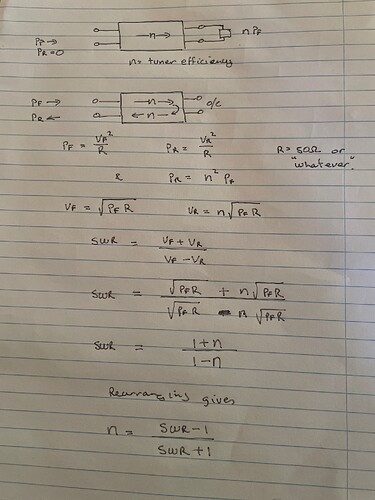 n → n PF
PF →
PR = 0
n = tuner efficiency
PF → n → o/c
PR ← ← n
PF = VF²/R PR = VR²/R R = 50Ω or "whatever"
& PR = n² PF
VF = √PF R VR = n√PF R
SWR = VF + VR / VF - VR
SWR = √PF R + n√PF R / √PF R - n √PF R
SWR = 1+n / 1-n
Rearranging gives
n = SWR-1 / SWR+1